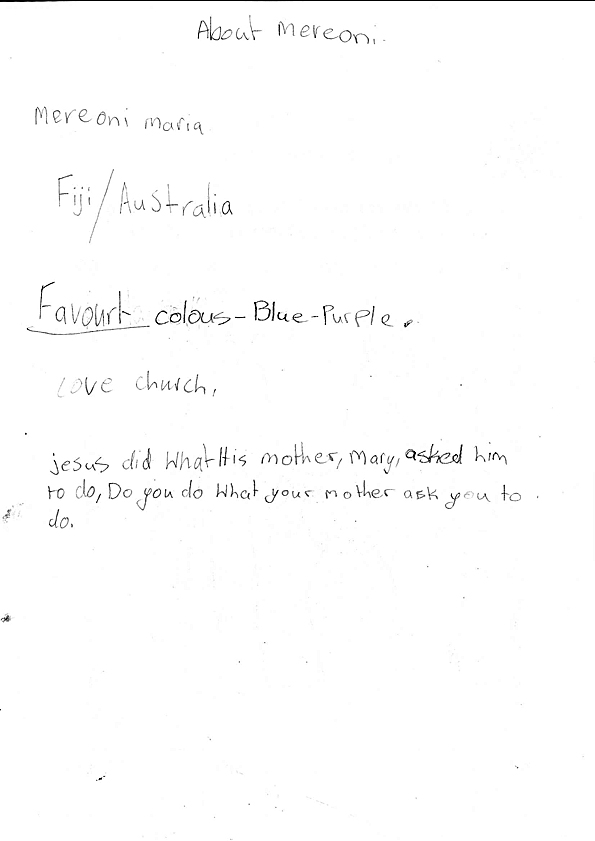 About Mereoni.
Mereoni maria
Fiji/Australia
Favourt colous-Blue-Purple.
Love church,
jesus did What His mother, Mary, asked him
to do, Do you do What your mother ask you to
do.